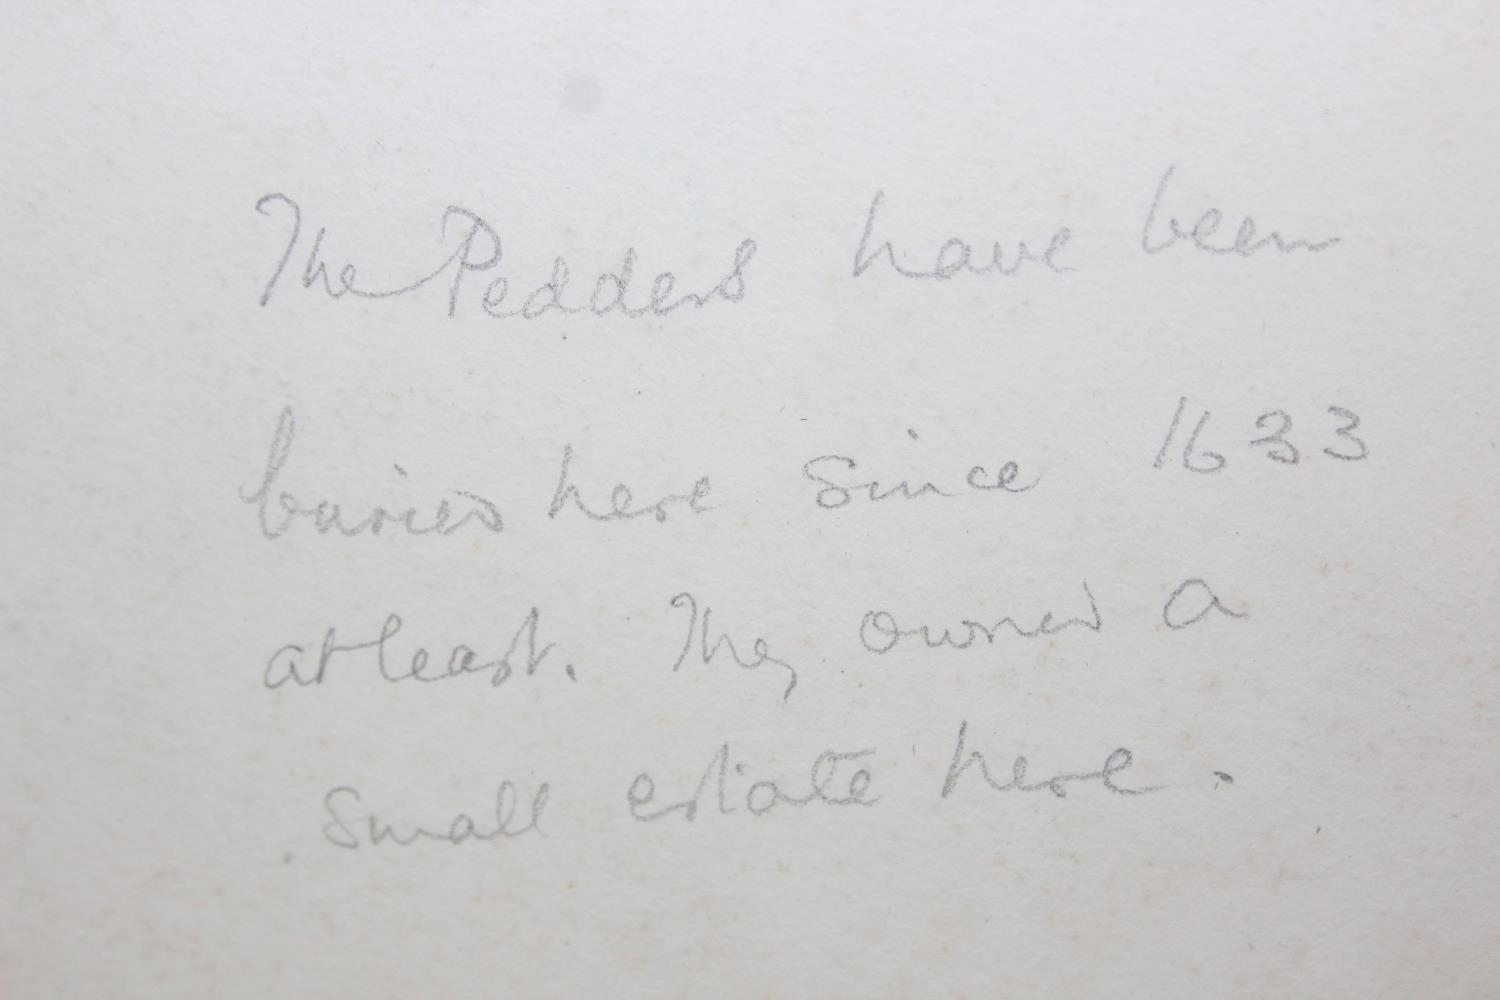 The Pedders have been
buried here since 1633
at least. They owned a
small estate here.